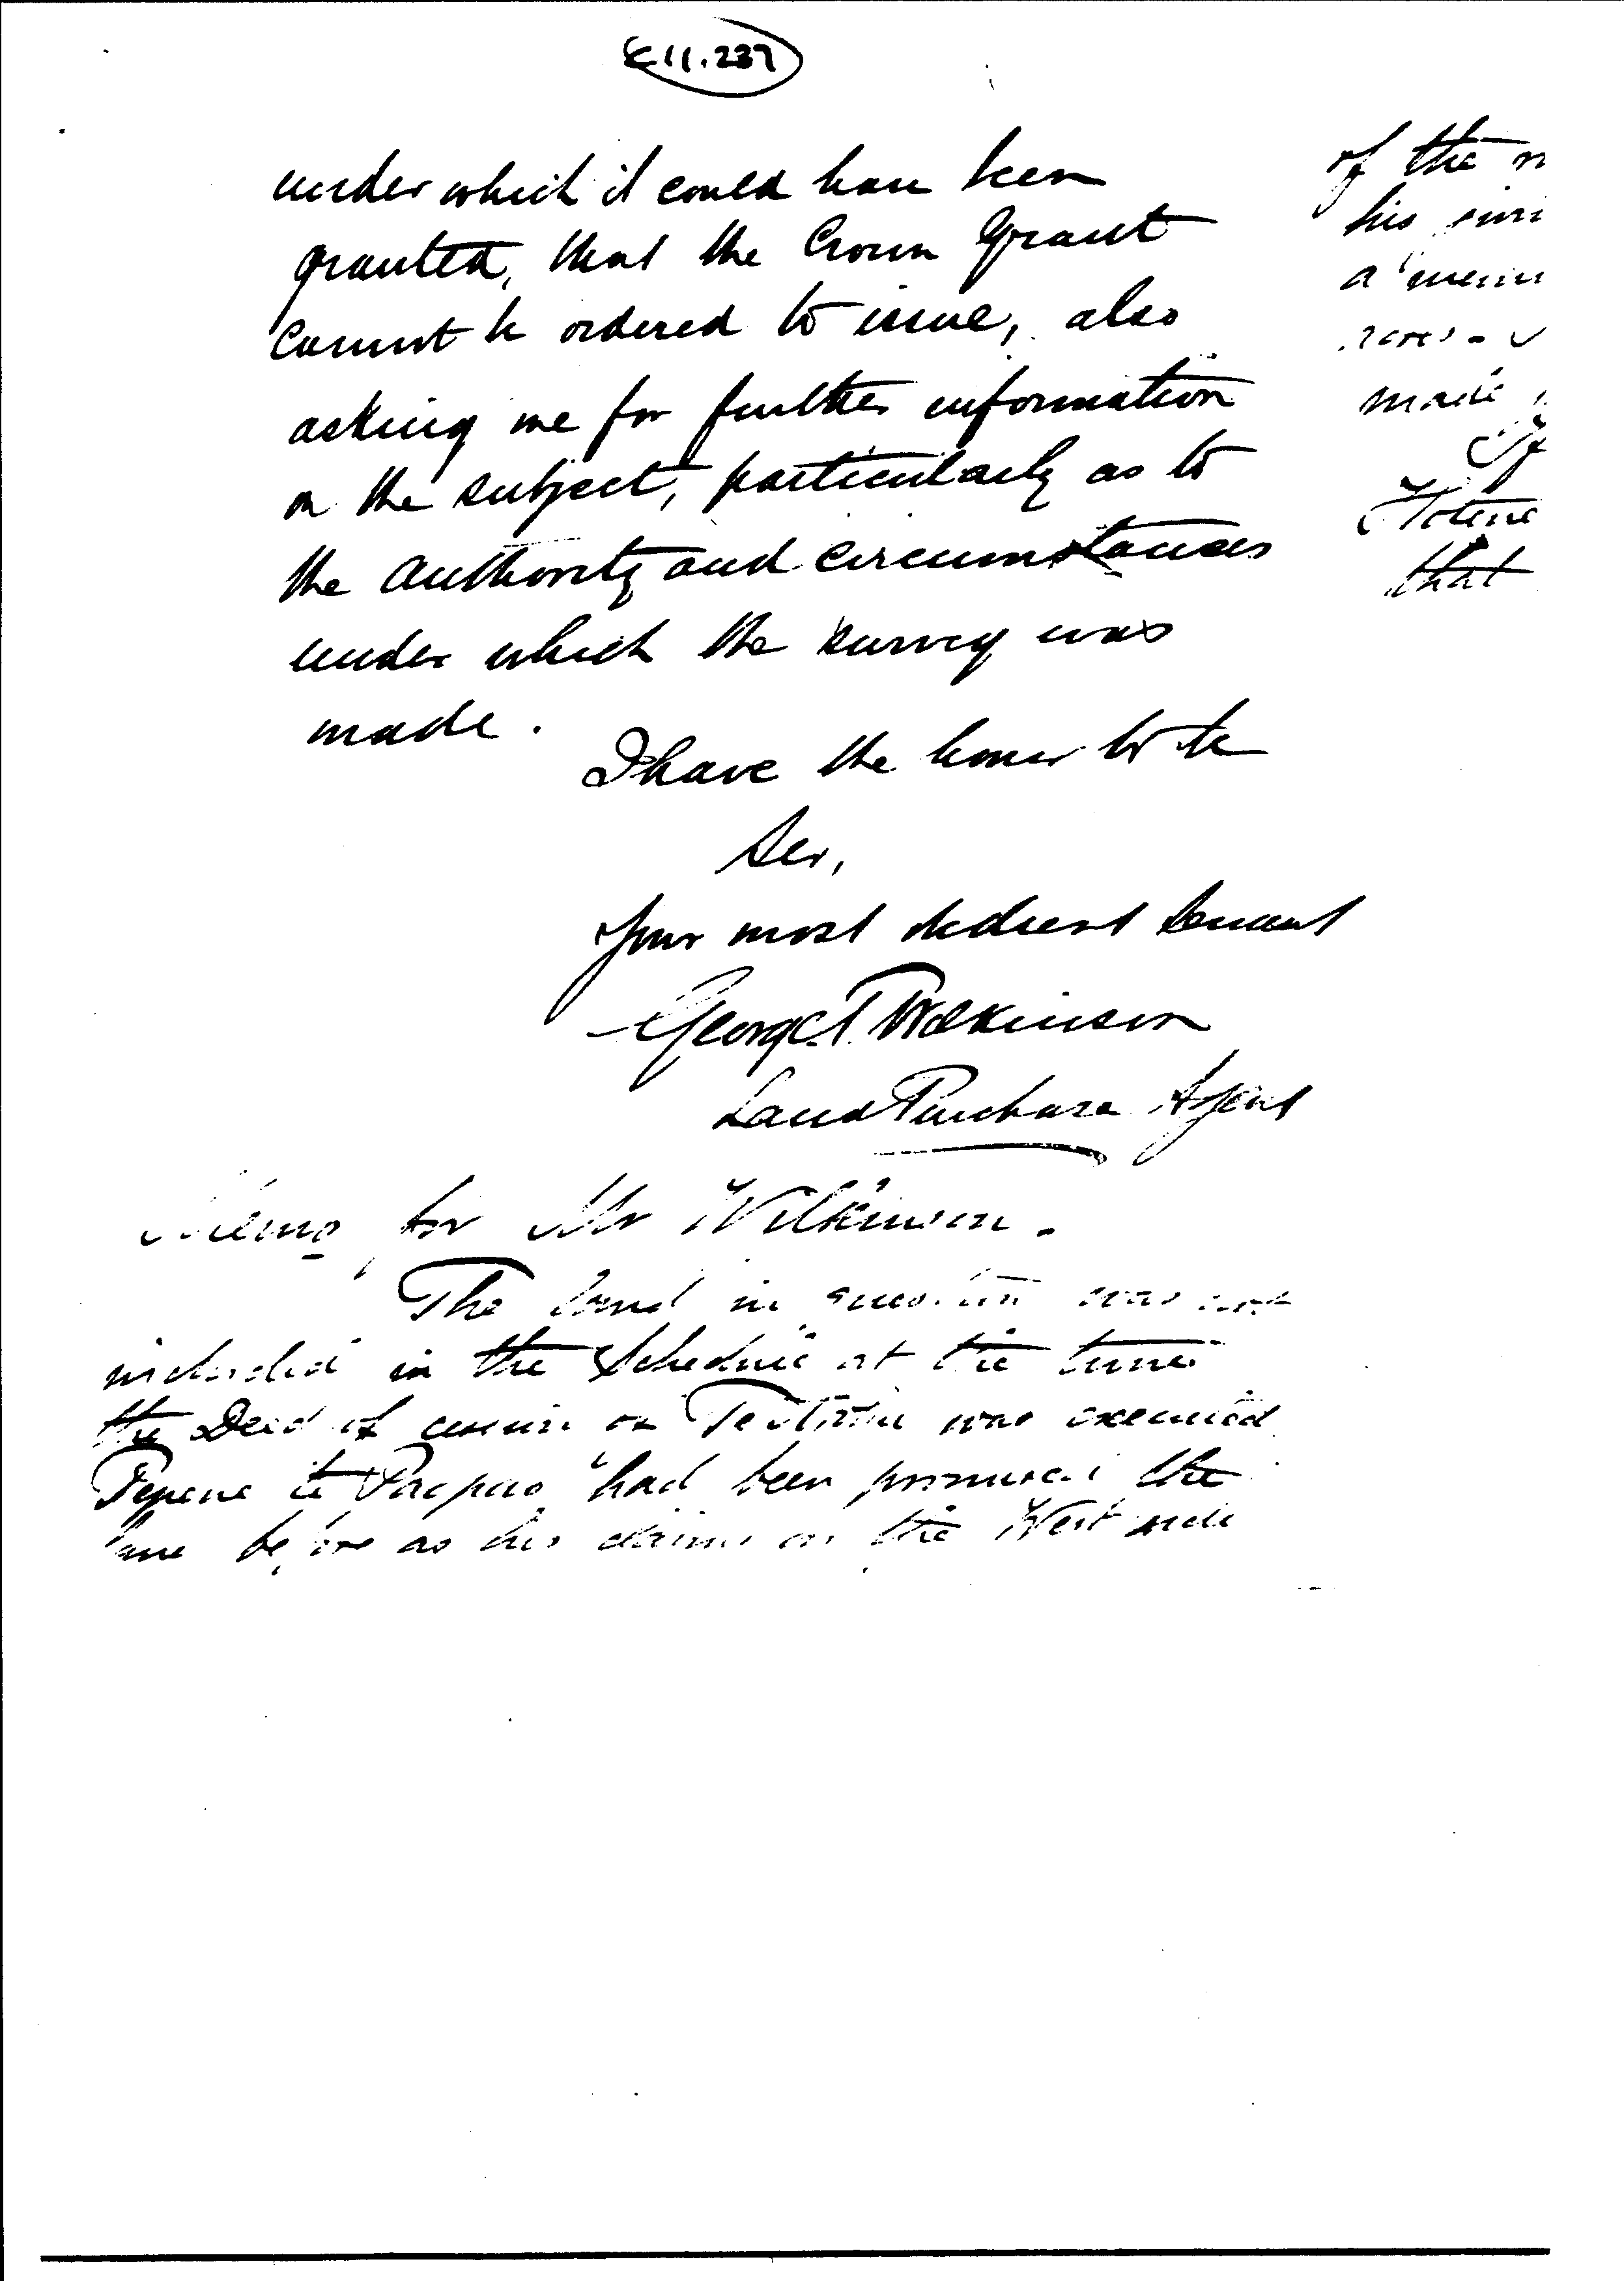 E 11.237
under which it could have been
granted, that the Crown Grant
Cannot be ordered to issue, also
asking me for further information
on the subject, particularly as to
the Authority and Circumstances
under which the survey was
made.
I have the honor to be
Sir,
Your most obedient Servant
George T. Wilkinson
Land Purchase Agent
Memo for Mr Wilkinson.
The land in question was not
included in the Schedule at the time
the Deed of cession of was executed
Tepene te Paopao had been promised the
before as his claims on the West side
of the
his
a
made
If
that